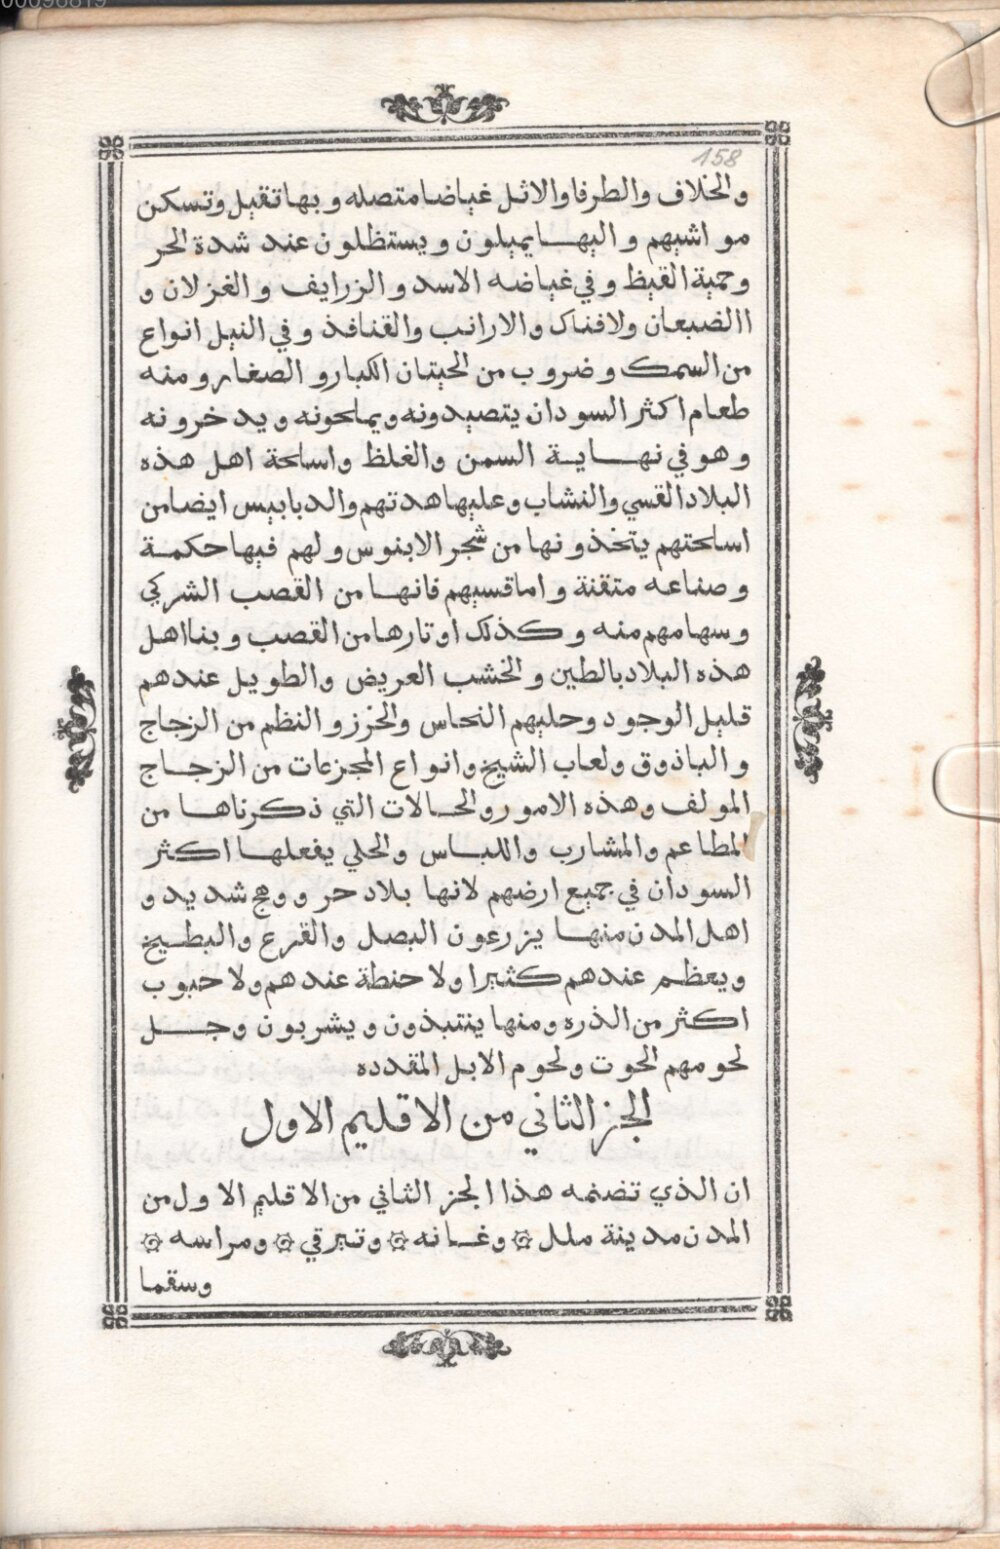 00096819
158
والخلاف والطرفا والاثل غياضا متصله وبها تقيل وتسكن
مواشيهم واليهـا يميلون ويستظلون عند شدة الحر
وحمية القيظ وفي غياضه الاسد والزرايف والغزلان و
االضبعان ولافناك والارانب والقنافذ وفي النيل انواع
من السمك وضروب من الحيتان الكبار و الصغار ومنه
طعام اكثر السودان يتصيدونه ويملحونه ويدخرونه
وهو في نهـاية السمن والغلظ واسلحة اهل هذه
البلاد القسي والنشاب وعليها هدتهم والدبابيس ايضا من
اسلحتهم يتخذونها من شجر الابنوس ولهم فيها حكمة
وصناعه متقنة واما قسيهم فانهـا من القصب الشركي
وسهامهم منه وكذلك اوتارها من القصب وبنا اهل
هذه البلاد بالطين والخشب العريض والطويل عندهم
قليل الوجود وحليهم النحاس والخرز والنظم من الزجاج
والباذوق ولعاب الشيخ وانواع المجزعات من الزجـاج
المولف وهذه الامور والحـالات التي ذكرناهـا من
المطاعم والمشارب واللبـاس والحلي يفعلهـا اكثر
السودان في جميع ارضهم لانها بلاد حر ووهج شديد و
اهل المدن منهـا يزرعون البصل والقرع والبطيخ
ويعظم عندهم كثيرا ولا حنطة عندهم ولا حبوب
اكثر من الذره ومنها ينتبذون ويشربون وجـل
لحومهم الحوت ولحوم الابل المقدده
الجز الثاني من الاقليم الاول
ان الذي تضمنه هذا الجز الثاني من الاقليم الاول من
المدن مدينة ملل ۞ وغـانه ۞ وتيرقي ۞ ومراسه ۞
وسقما